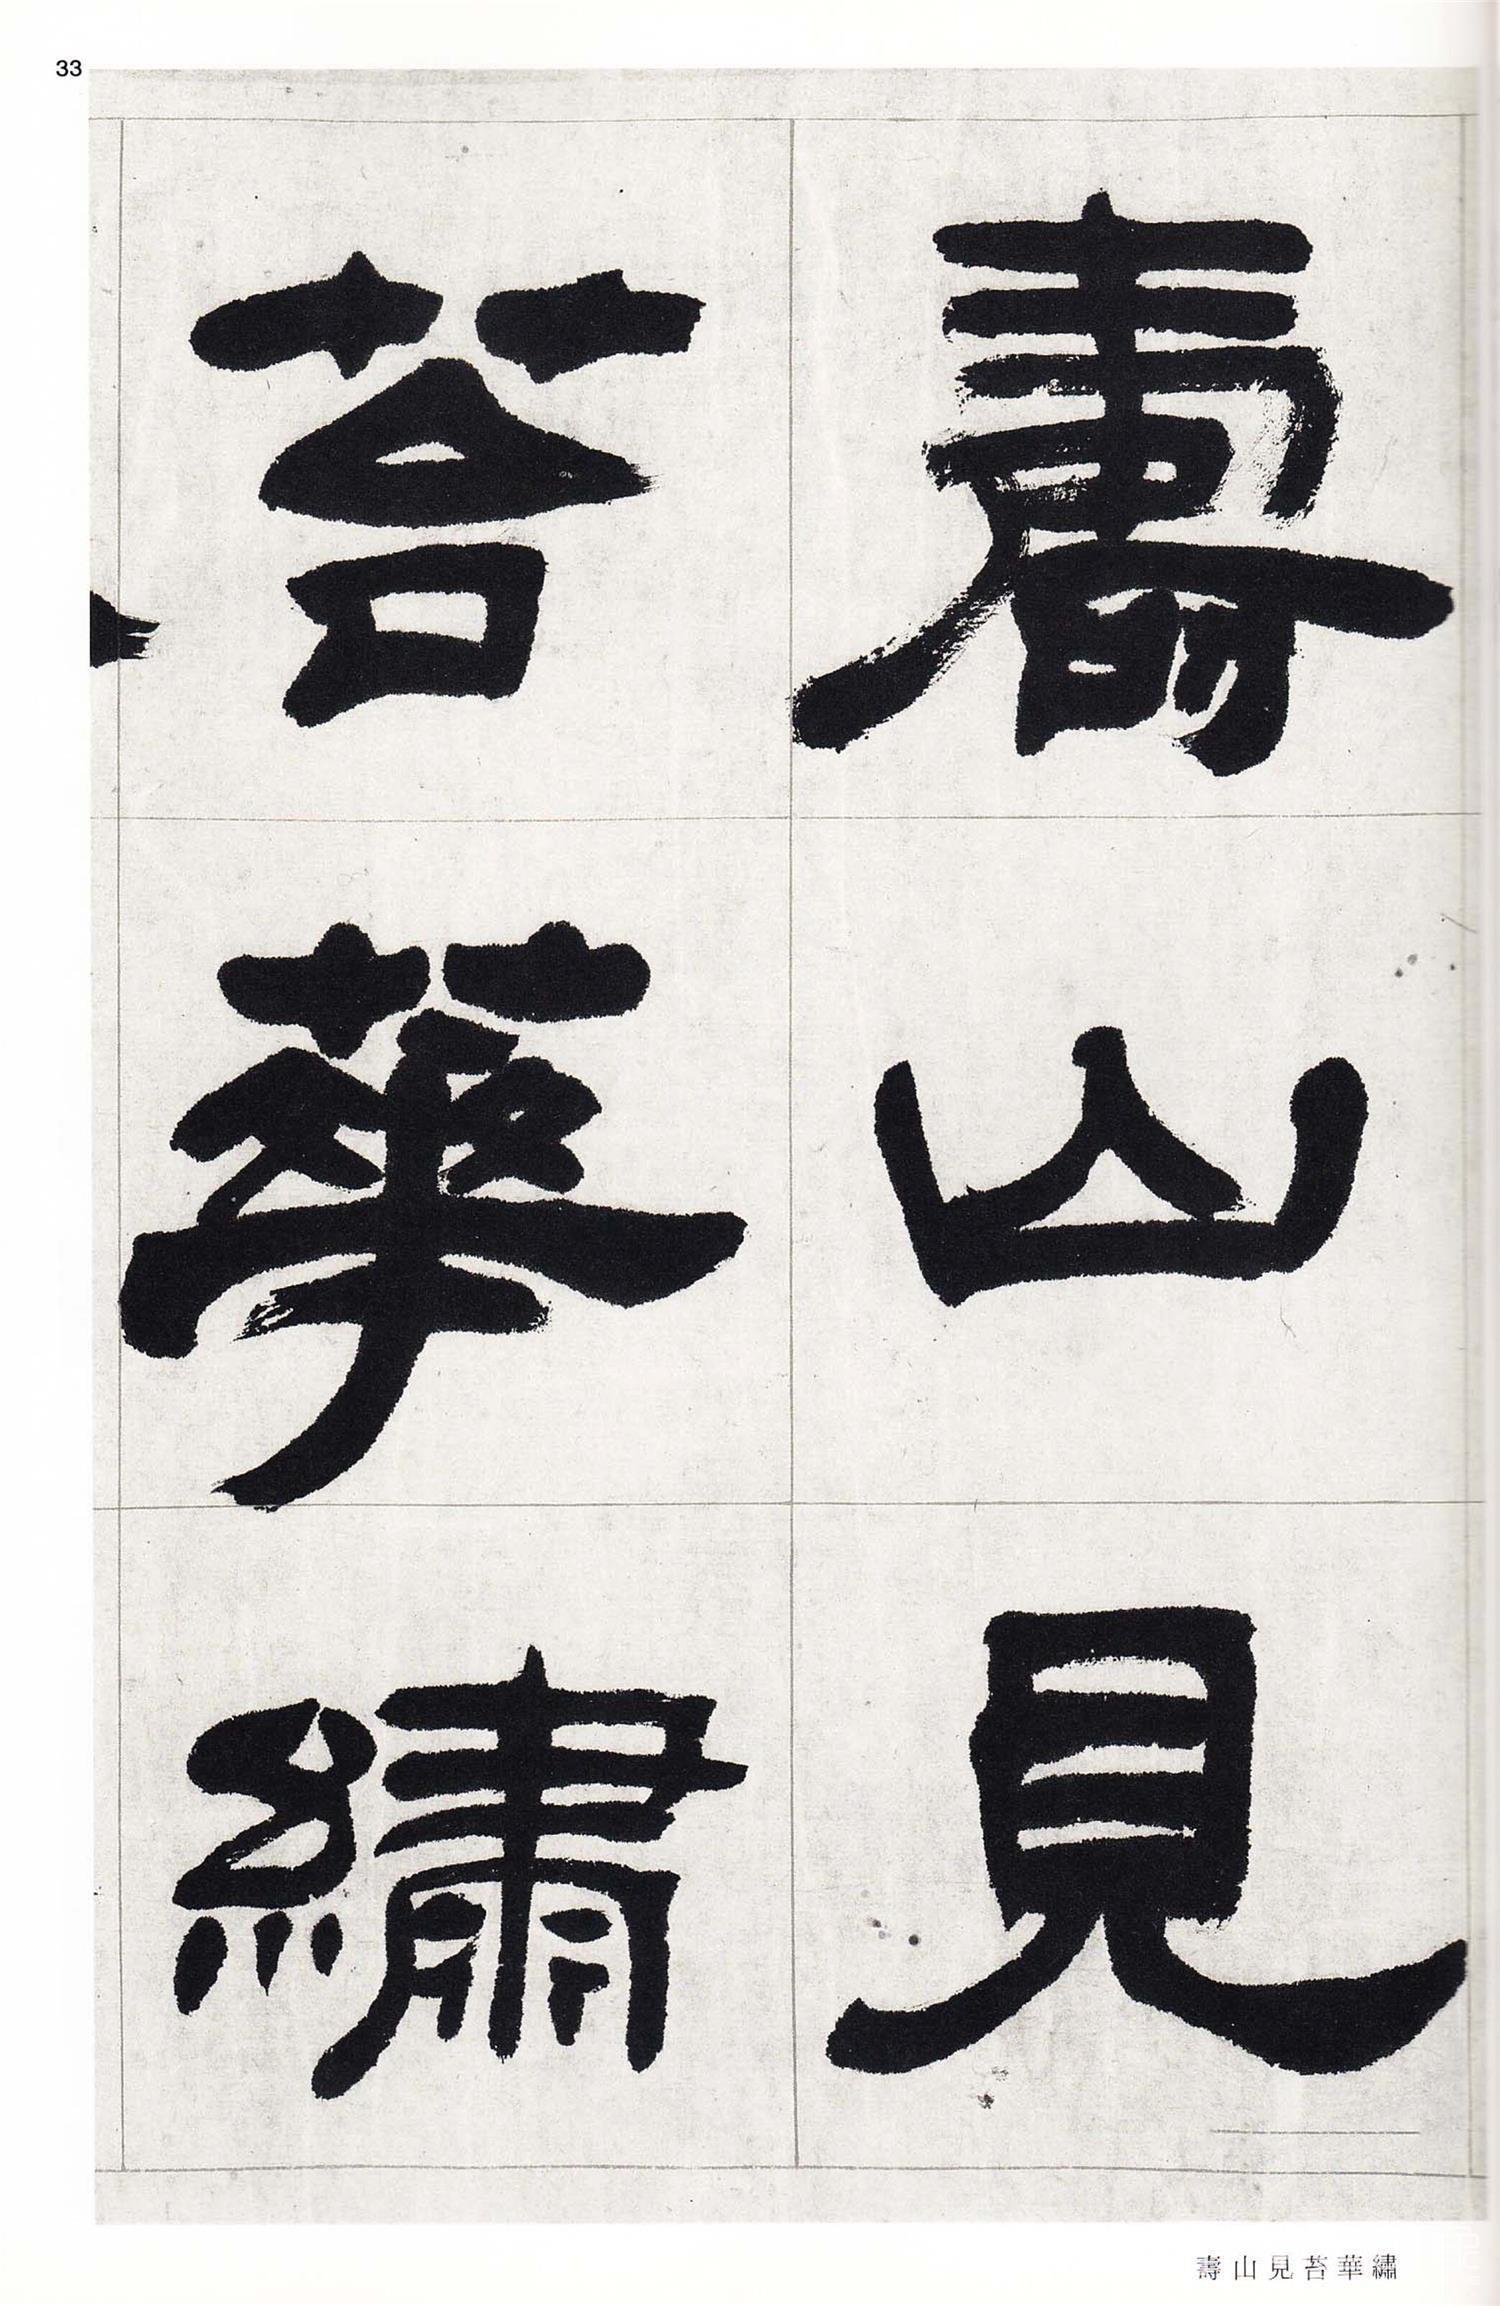 33
壽山見
苔華繡
壽山見苔華繡